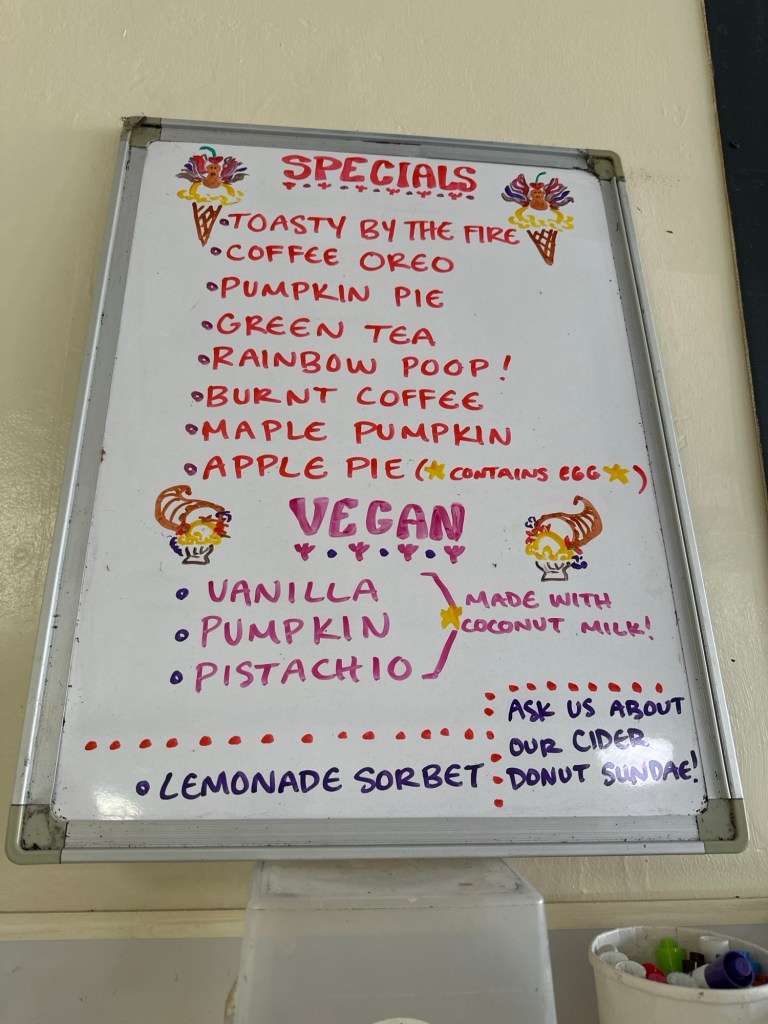 SPECIALS
•TOASTY BY THE FIRE
•COFFEE OREO
•PUMPKIN PIE
•GREEN TEA
•RAINBOW POOP!
•BURNT COFFEE
•MAPLE PUMPKIN
•APPLE PIE (★CONTAINS EGG★)
VEGAN
• VANILLA
• PUMPKIN
• PISTACHIO
★MADE WITH
COCONUT MILK!
• LEMONADE SORBET
ASK US ABOUT
OUR CIDER
DONUT SUNDAE!